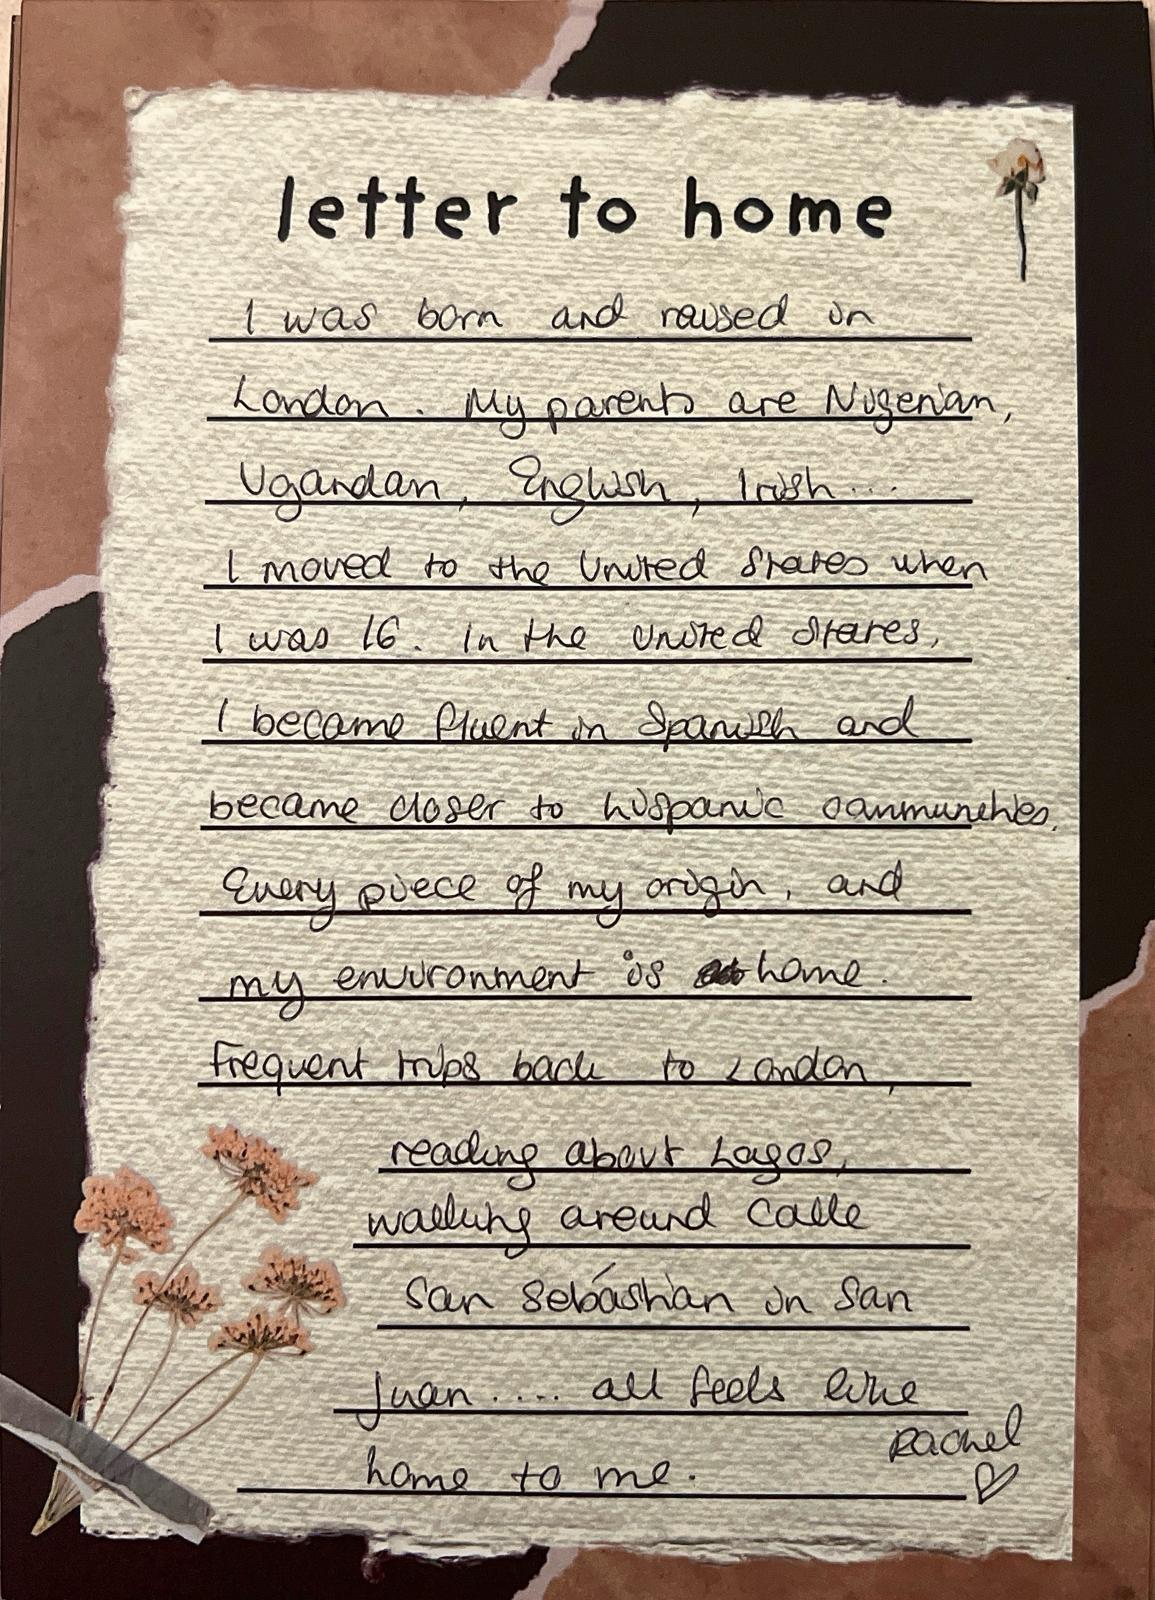 letter to home
I was born and raised in
London. My parents are Nigerian,
Ugandan, English, Irish...
I moved to the United States when
I was 16. In the United States,
I became fluent in Spanish and
became closer to hispanic communities.
Every piece of my origin, and
my environment is home.
Frequent trips back to London,
reading about Lagos,
walking around Calle
San Sebástian in San
Juan.... all feels like
home to me.
Rachel